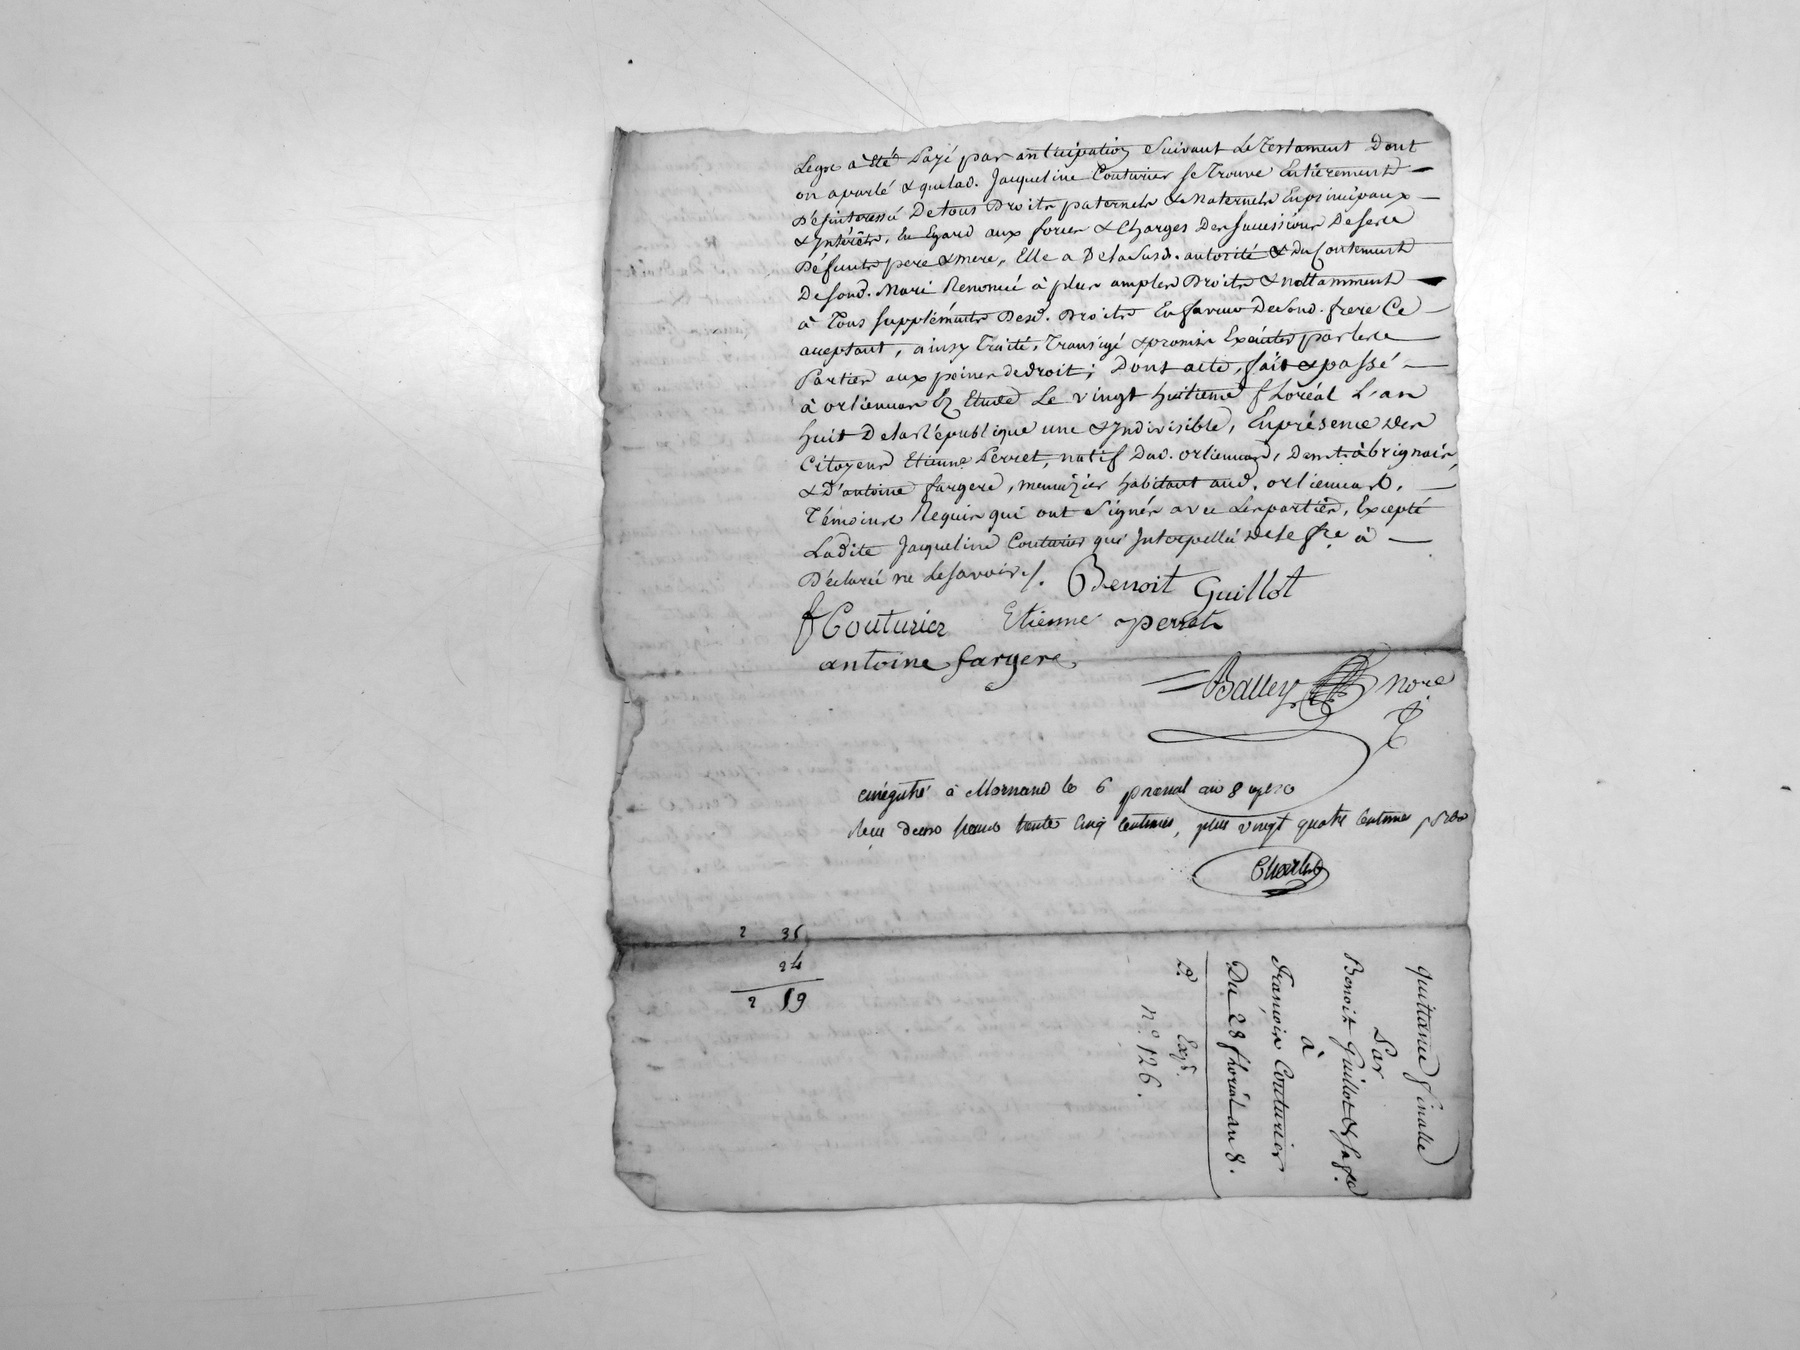 Legs à été Payé par anticipation Suivant Le Testament Dont
on a parlé & que lad. Jacqueline Couturier se Trouve Entièrement
Désintéressé De tous Droits paternels & Maternels En principaux
& Intérêts, Eu Egard aux forces & Charges Des Successions De ses
Défunts pere & mere, Elle a De la Susd. autorité & Du Contement
De sond. Mari Renoncé à plus amples Droits & nottamment
à Tous suppléments Desd. Droits En faveur De sond. frere Ce
acceptant, ainsy Traité, Transigé & promis Exécuter par les
Parties aux peines de droit; Dont acte, fait & passé
à orliennas En Etude Le vingt huitieme floréal L'an
huit De la République une & Indivisible, En présence des
Citoyens Etienne Perret, natif Dud. orliennas, Demt. à brignais,
& D'antoine fargere, menuizier habitant aud. orliennas.
Témoins Requis qui ont Signés avec Les parties, Excepté
Ladite Jacqueline Couturier qui Interpellée de le fre à
Déclaré ne le savoir ./.
Benoit Guillot
f Couturier Etienne perret
antoine fargere
Balley Nore
enregistré à Mornand le 6 prairial an 8
Reçu deux francs trente Cinq Centimes, plus vingt quatre Centimes
2 35
24
2 59
quittance finalle
Par
Benoit Guillot & sa fe.
à
François Couturier
Du 28 floréal an 8.
2e. Expn.
n°. 126.